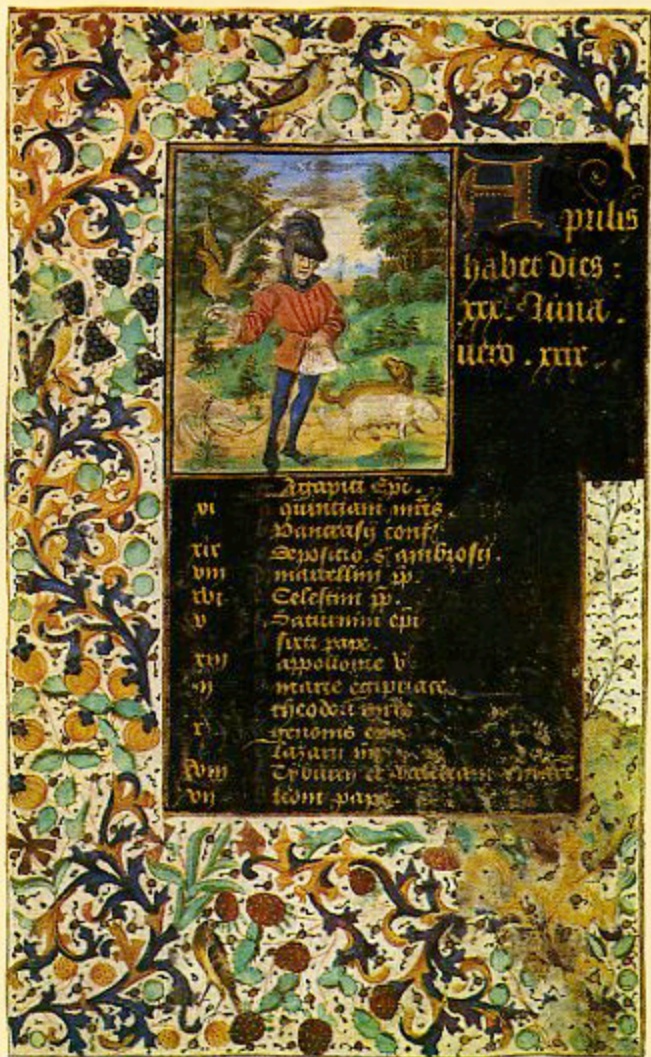 Aprilis
habet dies :
xxx. Luna .
vero . xxix .
Agapiti Epi .
vi quinciani mris .
Pancrasij conf
xix Deposicio . sͥ ambrosij .
viii marcellini pp .
xvi Celestini pp .
v Saturnini epi
sixti pape .
xiij appollonie v
ij marie egipciace
theodori mris
x
Lazari
xviij Tyburcij et
vij leoni pape .